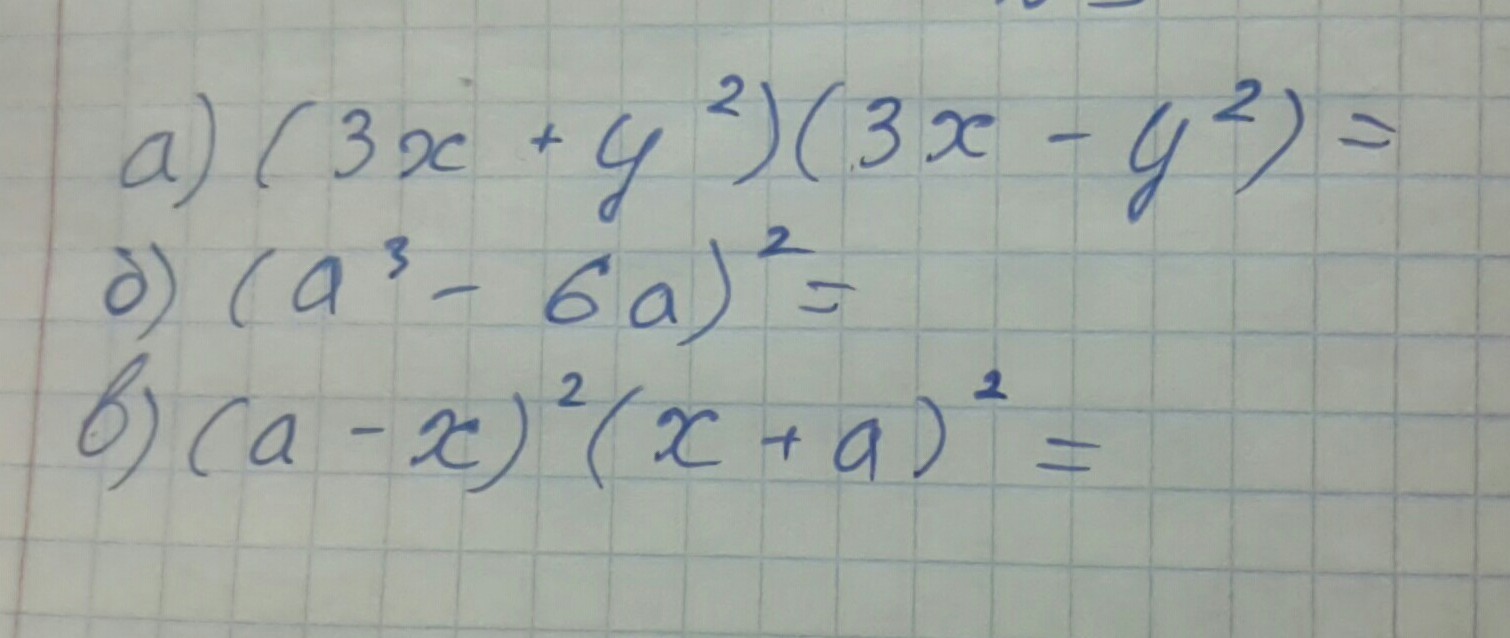 а) (3x + y²)(3x - y²) =
б) (a³ - 6a)² =
в) (a - x)²(x + a)² =